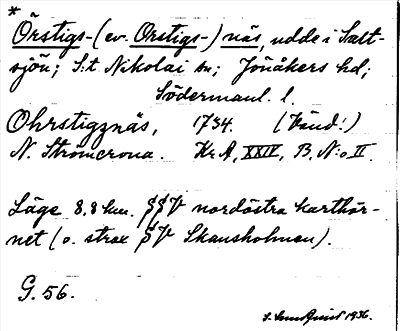 *
Örstigs-(ev. Orstigs-) näs, udde i Salt-
sjön; S:t Nikolai sn; Jönåkers hd;
Södermanl. l.
Ohrstigznäs, 1734. (Händ!)
N. Strömcrona. Kr A, XXIV, B. N:o II.
Läge 8,8 km. SSV nordöstra karthör-
net (o. strax SV Skansholmen).
G. 56.
1936.